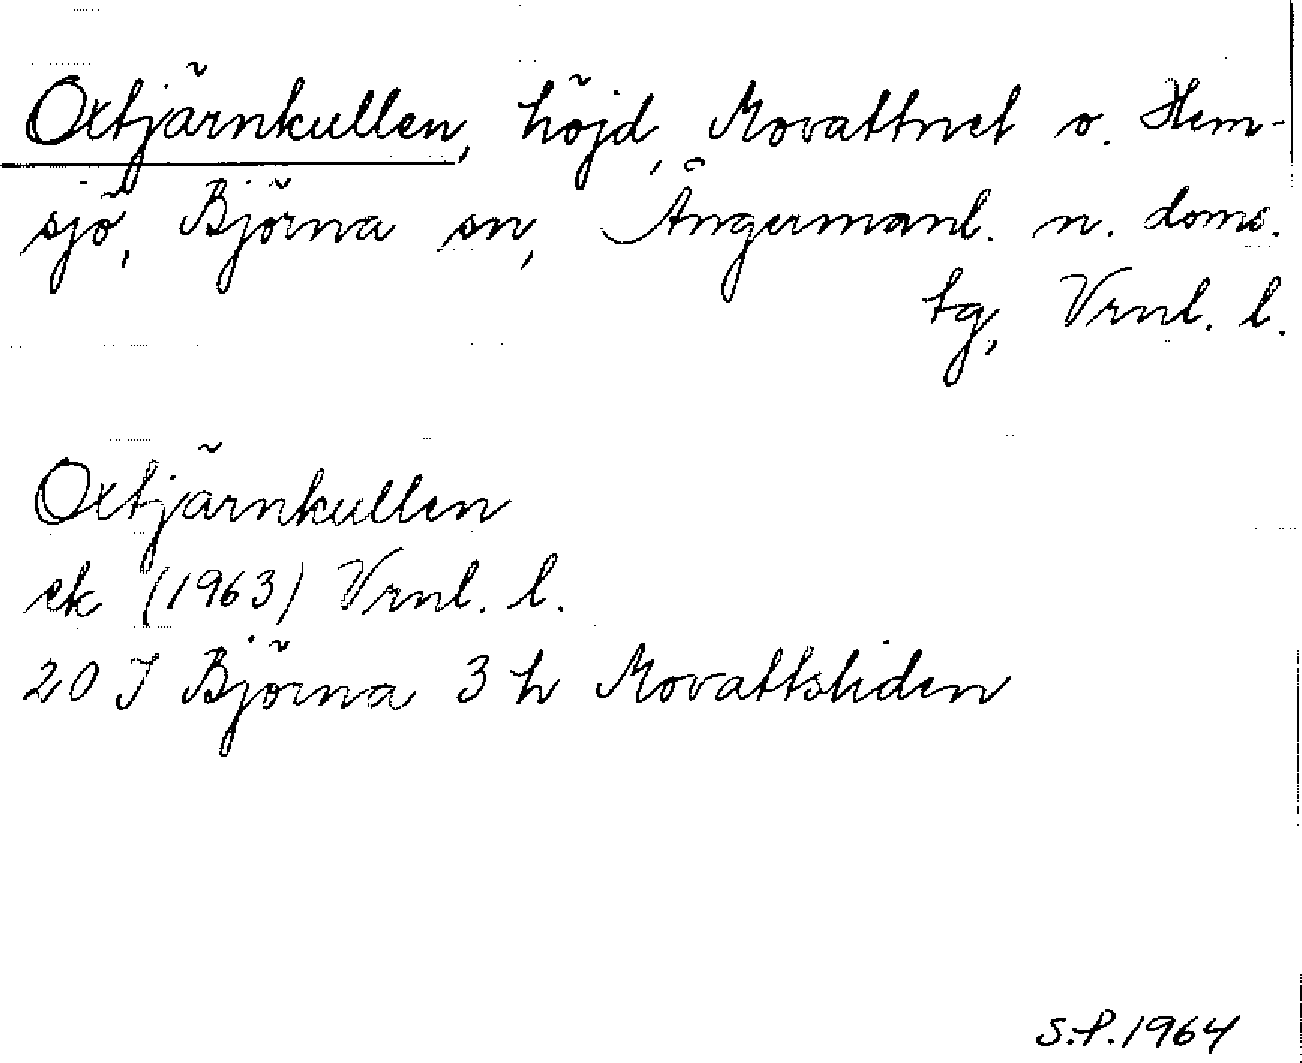 Oxtjärnkullen, höjd, Movattnet o. Hem-
sjö, Björna sn, Ångermanl. n. doms.
tg, Vrnl. l.
Oxtjärnkullen
ek (1963) Vrnl. l.
20 I Björna 3 h Movattsliden
S.P. 1964